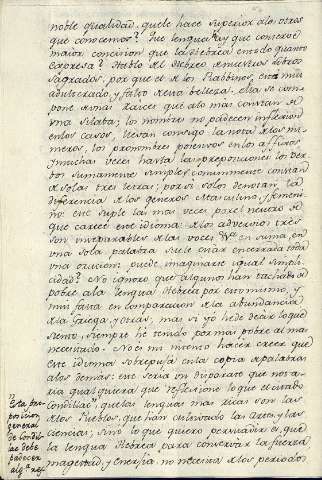 noble qualidad, que le hace superior a los otros
que conocemos? Que lengua hay que conserve
maior concision que la Hebrea en todo quanto
expresa? Hablo del Hebreo de nuestros libros
Sagrados, por que el de los Rabbinos, está mui
adulterado, y falto de esta belleza. ella se com
pone de unas raices que a lo mas constan de
una silaba; los nombres no padecen inflexion
en los casos, llevan consigo la nota de los nu
meros, los pronombres posesivos en los affixos,
y muchas veces hasta las preposiciones: los ver
bos sumamente simples comunmente constan
de solas tres letras; por si solos denotan la
diferencia de los generos Masculino, y femeni
no: que suple las mas veces por el neutro de
que carece este idioma: los adverbios
son inseparables de las voces: en suma, en
una sola palabra suele estar encerrada toda
una oracion. puede imaginarse igual simpli
cidad? No ignoro que algunos han tachado de
pobre a la lengua Hebrea por esto mismo, y
mui falta en comparacion de la abundancia
de la Griega, y otras, mas si yo hede decir lo que
siento, siempre he tenido por mas pobre al mas
necesitado. No es mi intento hacer creer que
este idioma sobrepuja en la copia de palabras
a los demas: este seria un disparate que nota
ria qualquiera que reflexione lo que el citado
Condillac, que las lenguas mas ricas son las
de los Pueblos que han cultivado las Artes, y las
ciencias; sino lo que quiero persuadir es, que
la lengua Hebrea para conservar la fuerza
magestad, y energia no necesita de los periodos
Esta pro
posicion
general
de Condi
llac debe
padecer